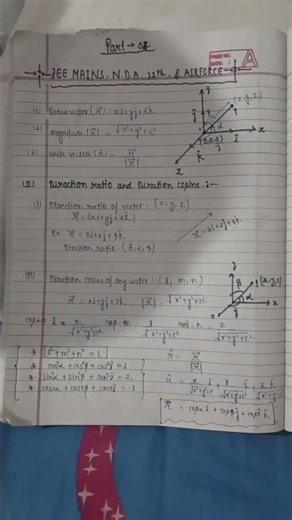 Part → 02
PAGE NO.
DATE:
JEE MAINS, N.D.A, 12th, & AIRFORCE
(1) vector (r⃗): xi+yj+zk
(2) magnitude |r⃗| = √x²+y²+z²
(3) unit vector (r̂) = r⃗/|r⃗|
(x, y, z)
(0,0,0)
x
z
Direction ratio and Direction cosine :-
(i) Direction ratio of vector: (x, y, z)
r⃗ = (xi+yj+zk)
Ex r⃗ = 3i+2j+4k
Direction ratio: (3, 2, 4)
r⃗ = 3i+2j+4k
(ii) Direction cosine of any vector: (l, m, n)
r⃗ = xi+yj+zk |r⃗| = √x²+y²+z²
(x,y,z)
cosα = l = x/√x²+y²+z² cosβ = m = y/√x²+y²+z² cosγ = n = z/√x²+y²+z²
* l²+m²+n² = 1
* cos²α + cos²β + cos²γ = 1
* sin²α + sin²β + sin²γ = 2
* cos2α + cos2β + cos2γ = -1
r̂ = r⃗/|r⃗|
r̂ = x/√x²+y²+z² i + y/√x²+y²+z² j + z/√x²+y²+z² k
r̂ = cosα i + cosβ j + cosγ k